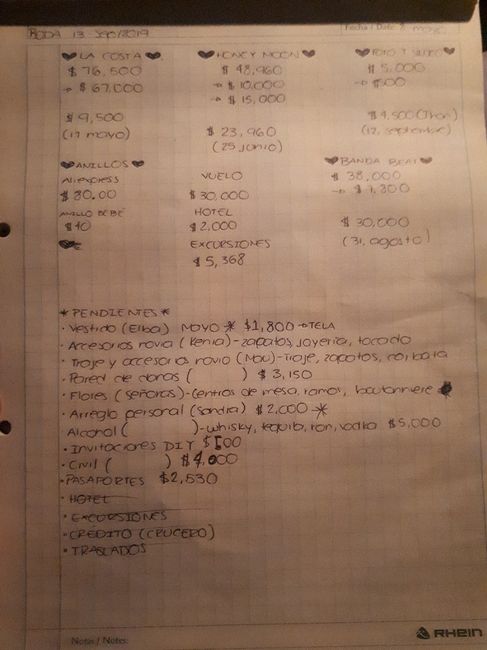 BODA 13 Sep/2019
Fecha / Date 9 mayo
LA COSTA
$ 76,500
→ $ 67,000
$ 9,500
(17 mayo)
HONEY MOON
$ 48,960
→ $ 10,000
→ $ 15,000
$ 23,960
(25 junio)
FOTO Y VIDEO
$ 5,000
→ $500
$ 4,500
(12, septiembre)
ANILLOS
Aliexpress
$ 80.00
ANILLO BEBÉ
$ 40
VUELO
$ 30,000
HOTEL
$ 2,000
EXCURSIONES
$ 5,368
BANDA BEAT
$ 38,000
→ $ 7,800
$ 30,000
(31, agosto)
* PENDIENTES *
• Vestido (Elba) MAYO * $1,800 → TELA
• Accesorios novia (Kenia) - zapatos, joyería, tocado
• Traje y accesorios novio (Mau) - Traje, zapatos, corbata
• Pared de donas ( ) $ 3,150
• Flores (señoras) - Centros de mesa, ramos, boutonniere
• Arreglo personal (Sandra) $ 2,000 - *
Alcohol ( ) - whisky, tequila, ron, vodka $5,000
• Invitaciones DIY $100
• Civil ( ) $4,000
• PASAPORTES $2,530
• HOTEL
• EXCURSIONES
• CRÉDITO (CRUCERO)
• TRASLADOS
Notas / Notes
RHEIN